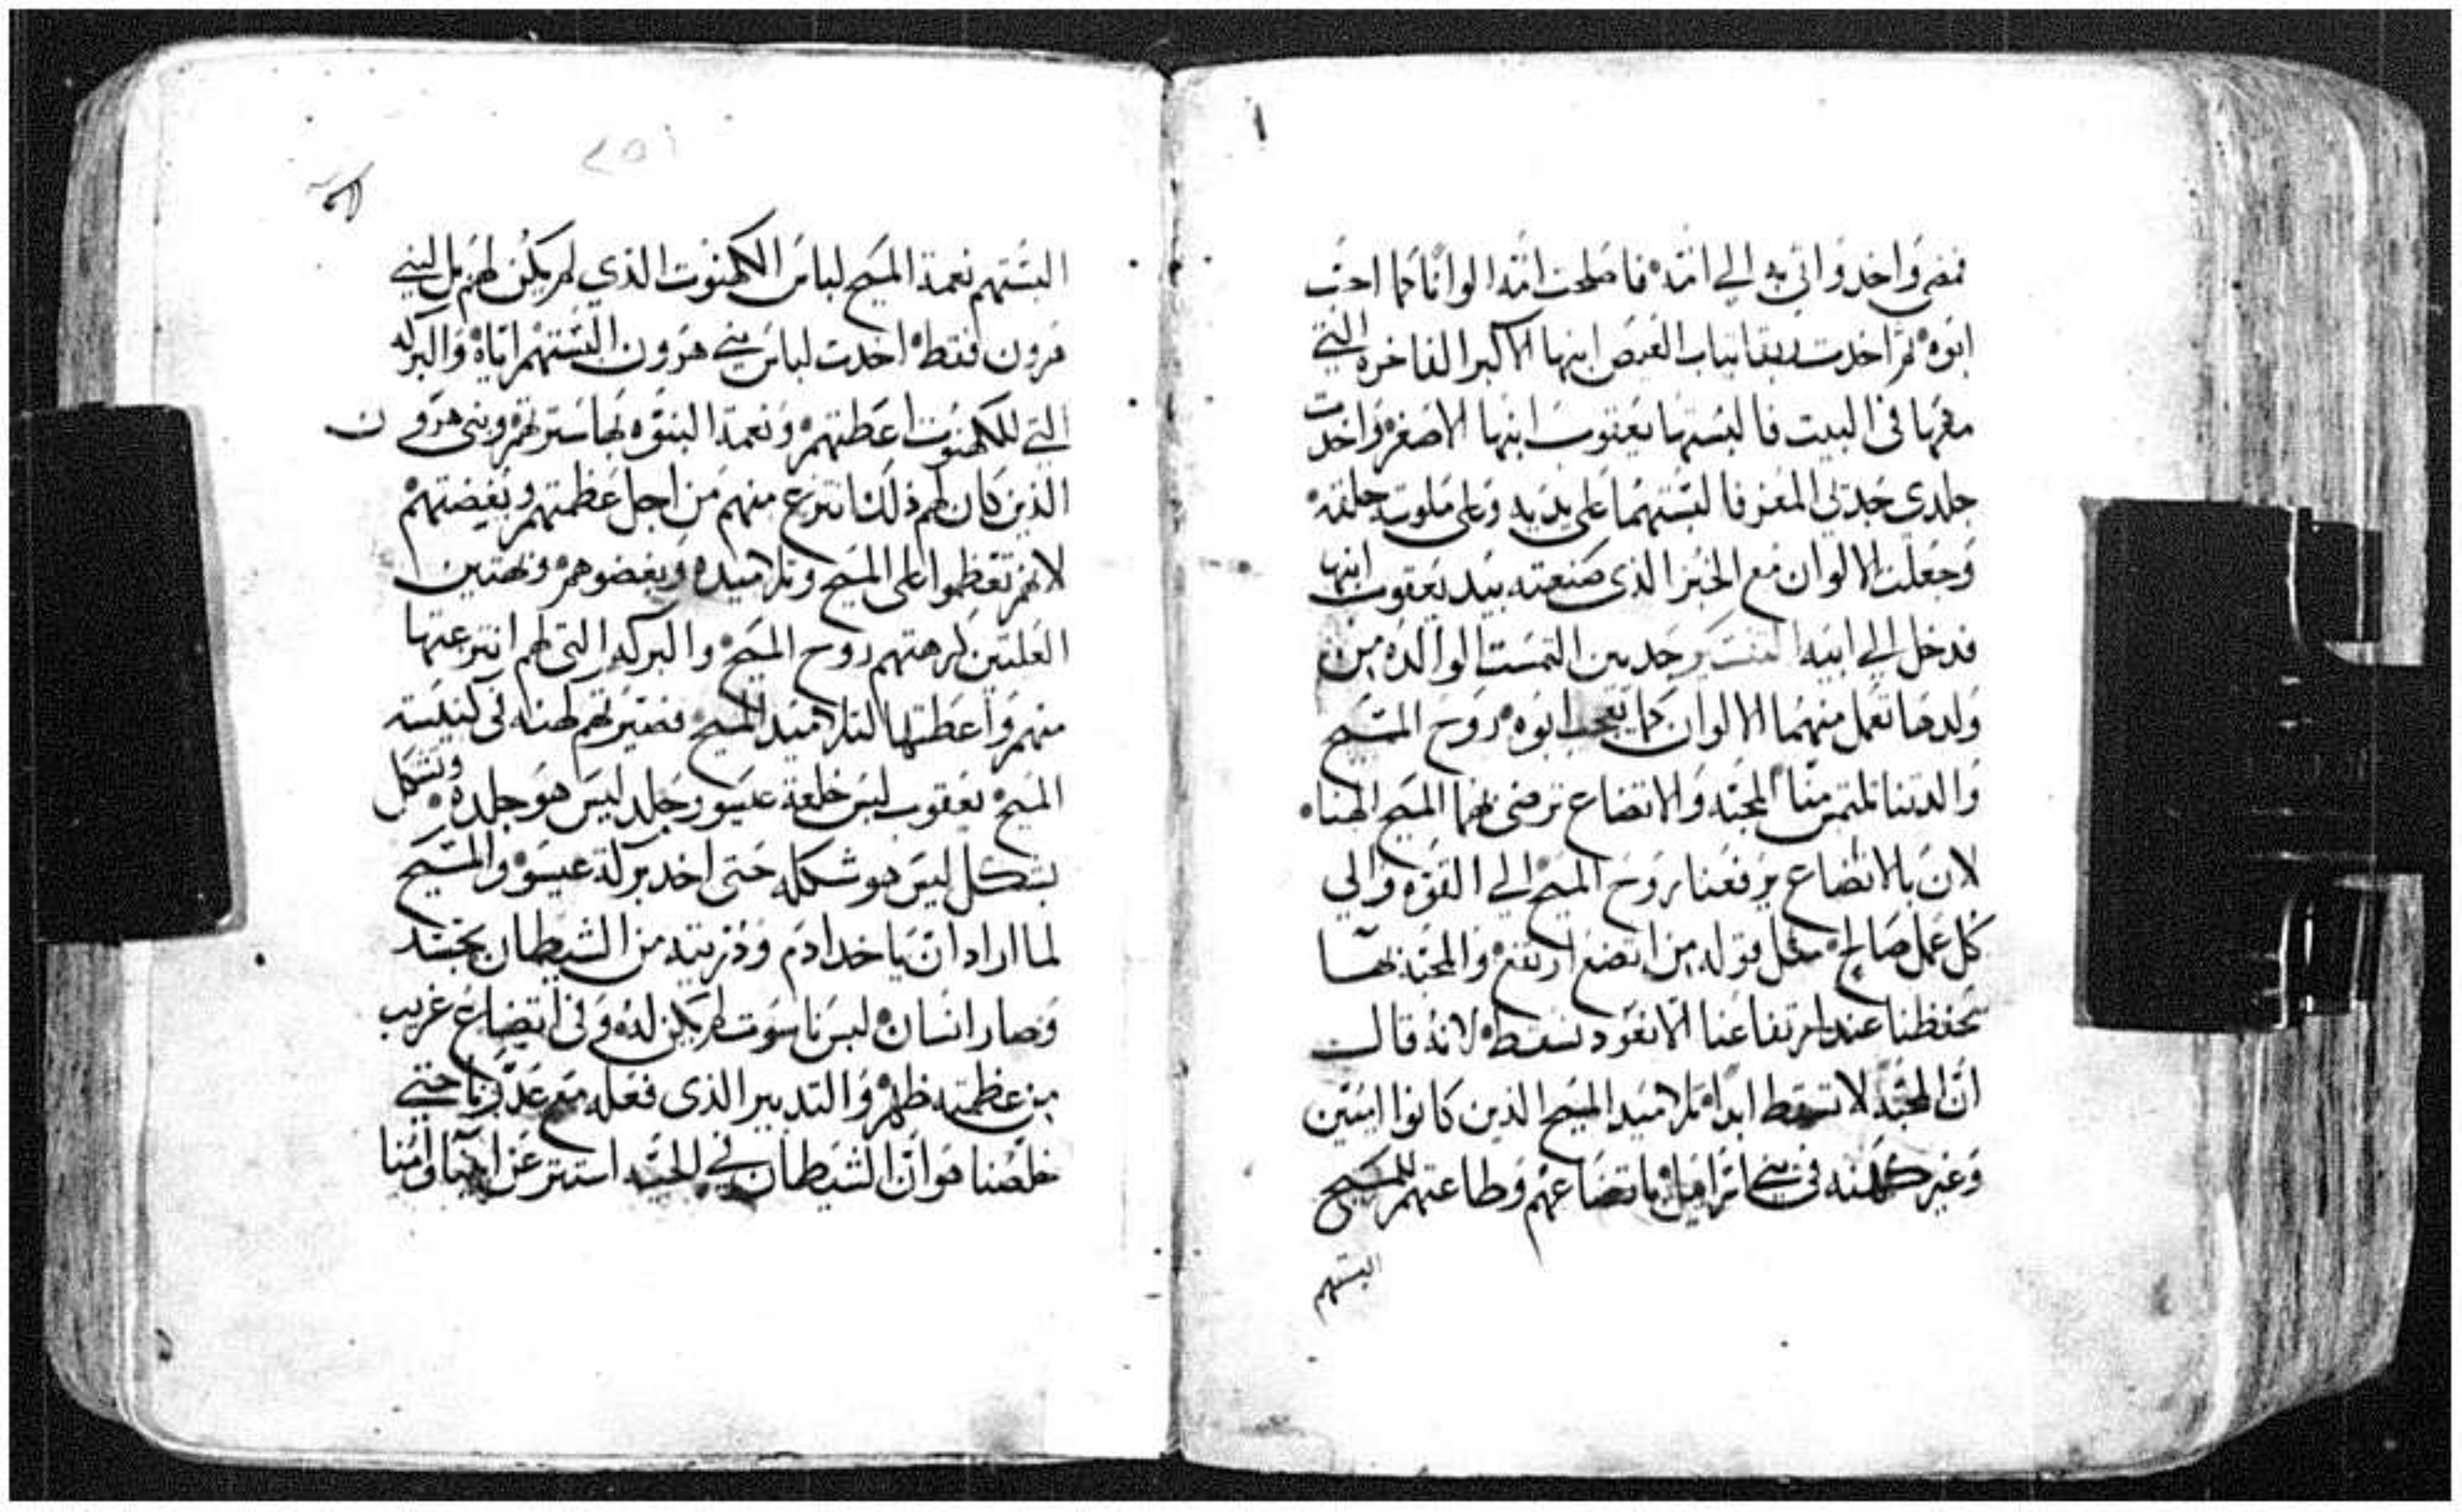 فمضى واخد واتى به الى امه فاصلحت امه الوانا كما احب
ابوه ثم اخدت ربقا ثياب العيص ابنها الاكبر الفاخره التي
معها في البيت فالبستها يعقوب ابنها الاصغر واخدت
جلدي جدي المعز فالبستهما على يديه وعلى ملوت حلقه
وجعلت الالوان مع الخبز الذي صنعته بيد يعقوب ابنها
فدخل الى ابيه التفسير جديين التمست الوالده من
ولدها تعمل منهما الالوان كما يحب ابوه روح المسيح
والدتنا تلتمس منا المحبه والاتضاع ترضى بهما المسيح الهنا
لان بالاتضاع يرفعنا روح المسيح الى القوه والى
كل عمل صالح مثل قوله من اتضع ارتفع والمحبه بها
تحفظنا عند ارتفاعنا الا نعود نسقط لانه قال
ان المحبه لا تسقط ابدا تلاميد المسيح الذين كانوا اميين
وغير كهنه في بني اسراييل باتضاعهم وطاعتهم للمسيح
البستهم
٢٥١
البستهم نعمة المسيح لباس الكهنوت الذي لم يكن لهم بل لبني
هرون فقط اخدت لباس بني هرون البستهم اياه والبركه
التي للكهنوت اعطتهم ونعمة البنوه بها سترتهم وبني هرون
الذين كان لهم ذلك انتزع منهم من اجل عظمتهم وبغضتهم
لانهم تعظموا على المسيح وتلاميده وبغضوهم وبهتين
العلتين كرهتهم روح المسيح والبركه التي لهم انتزعتها
منهم واعطتها لتلاميد المسيح فصيرتهم كهنه في كنيسته
المسيح يعقوب لبس خلعة عيسو وجلد ليس هو جلده وتشكل
بشكل ليس هو شكله حتى اخد بركة عيسو والمسيح
لما اراد ان ياخد ادم وذريته من الشيطان تجسد
وصار انسان لبس ناسوت لم يكن له وفي اتضاع غريب
من عظمته ظهر والتدبير الذي فعله مع عدونا حتى
خلصنا هو ان الشيطان في الحيه استتر عن ابينا وامنا